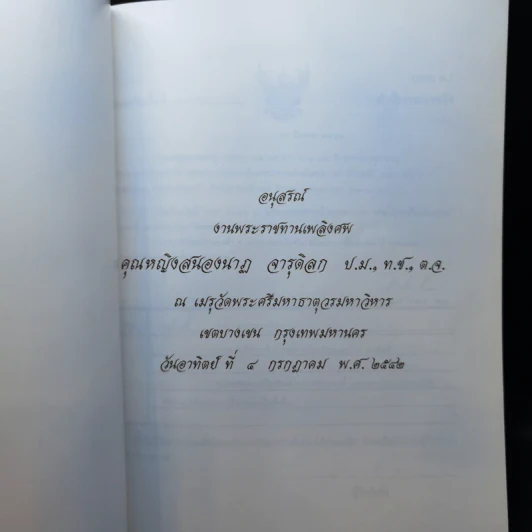 อนุสรณ์
งานพระราชทานเพลิงศพ
คุณหญิงสนองนาฏ จารุดิลก ป.ม., ท.ช., ต.จ.
ณ เมรุวัดพระศรีมหาธาตุวรมหาวิหาร
เขตบางเขน กรุงเทพมหานคร
วันอาทิตย์ ที่ ๔ กรกฎาคม พ.ศ. ๒๕๔๒